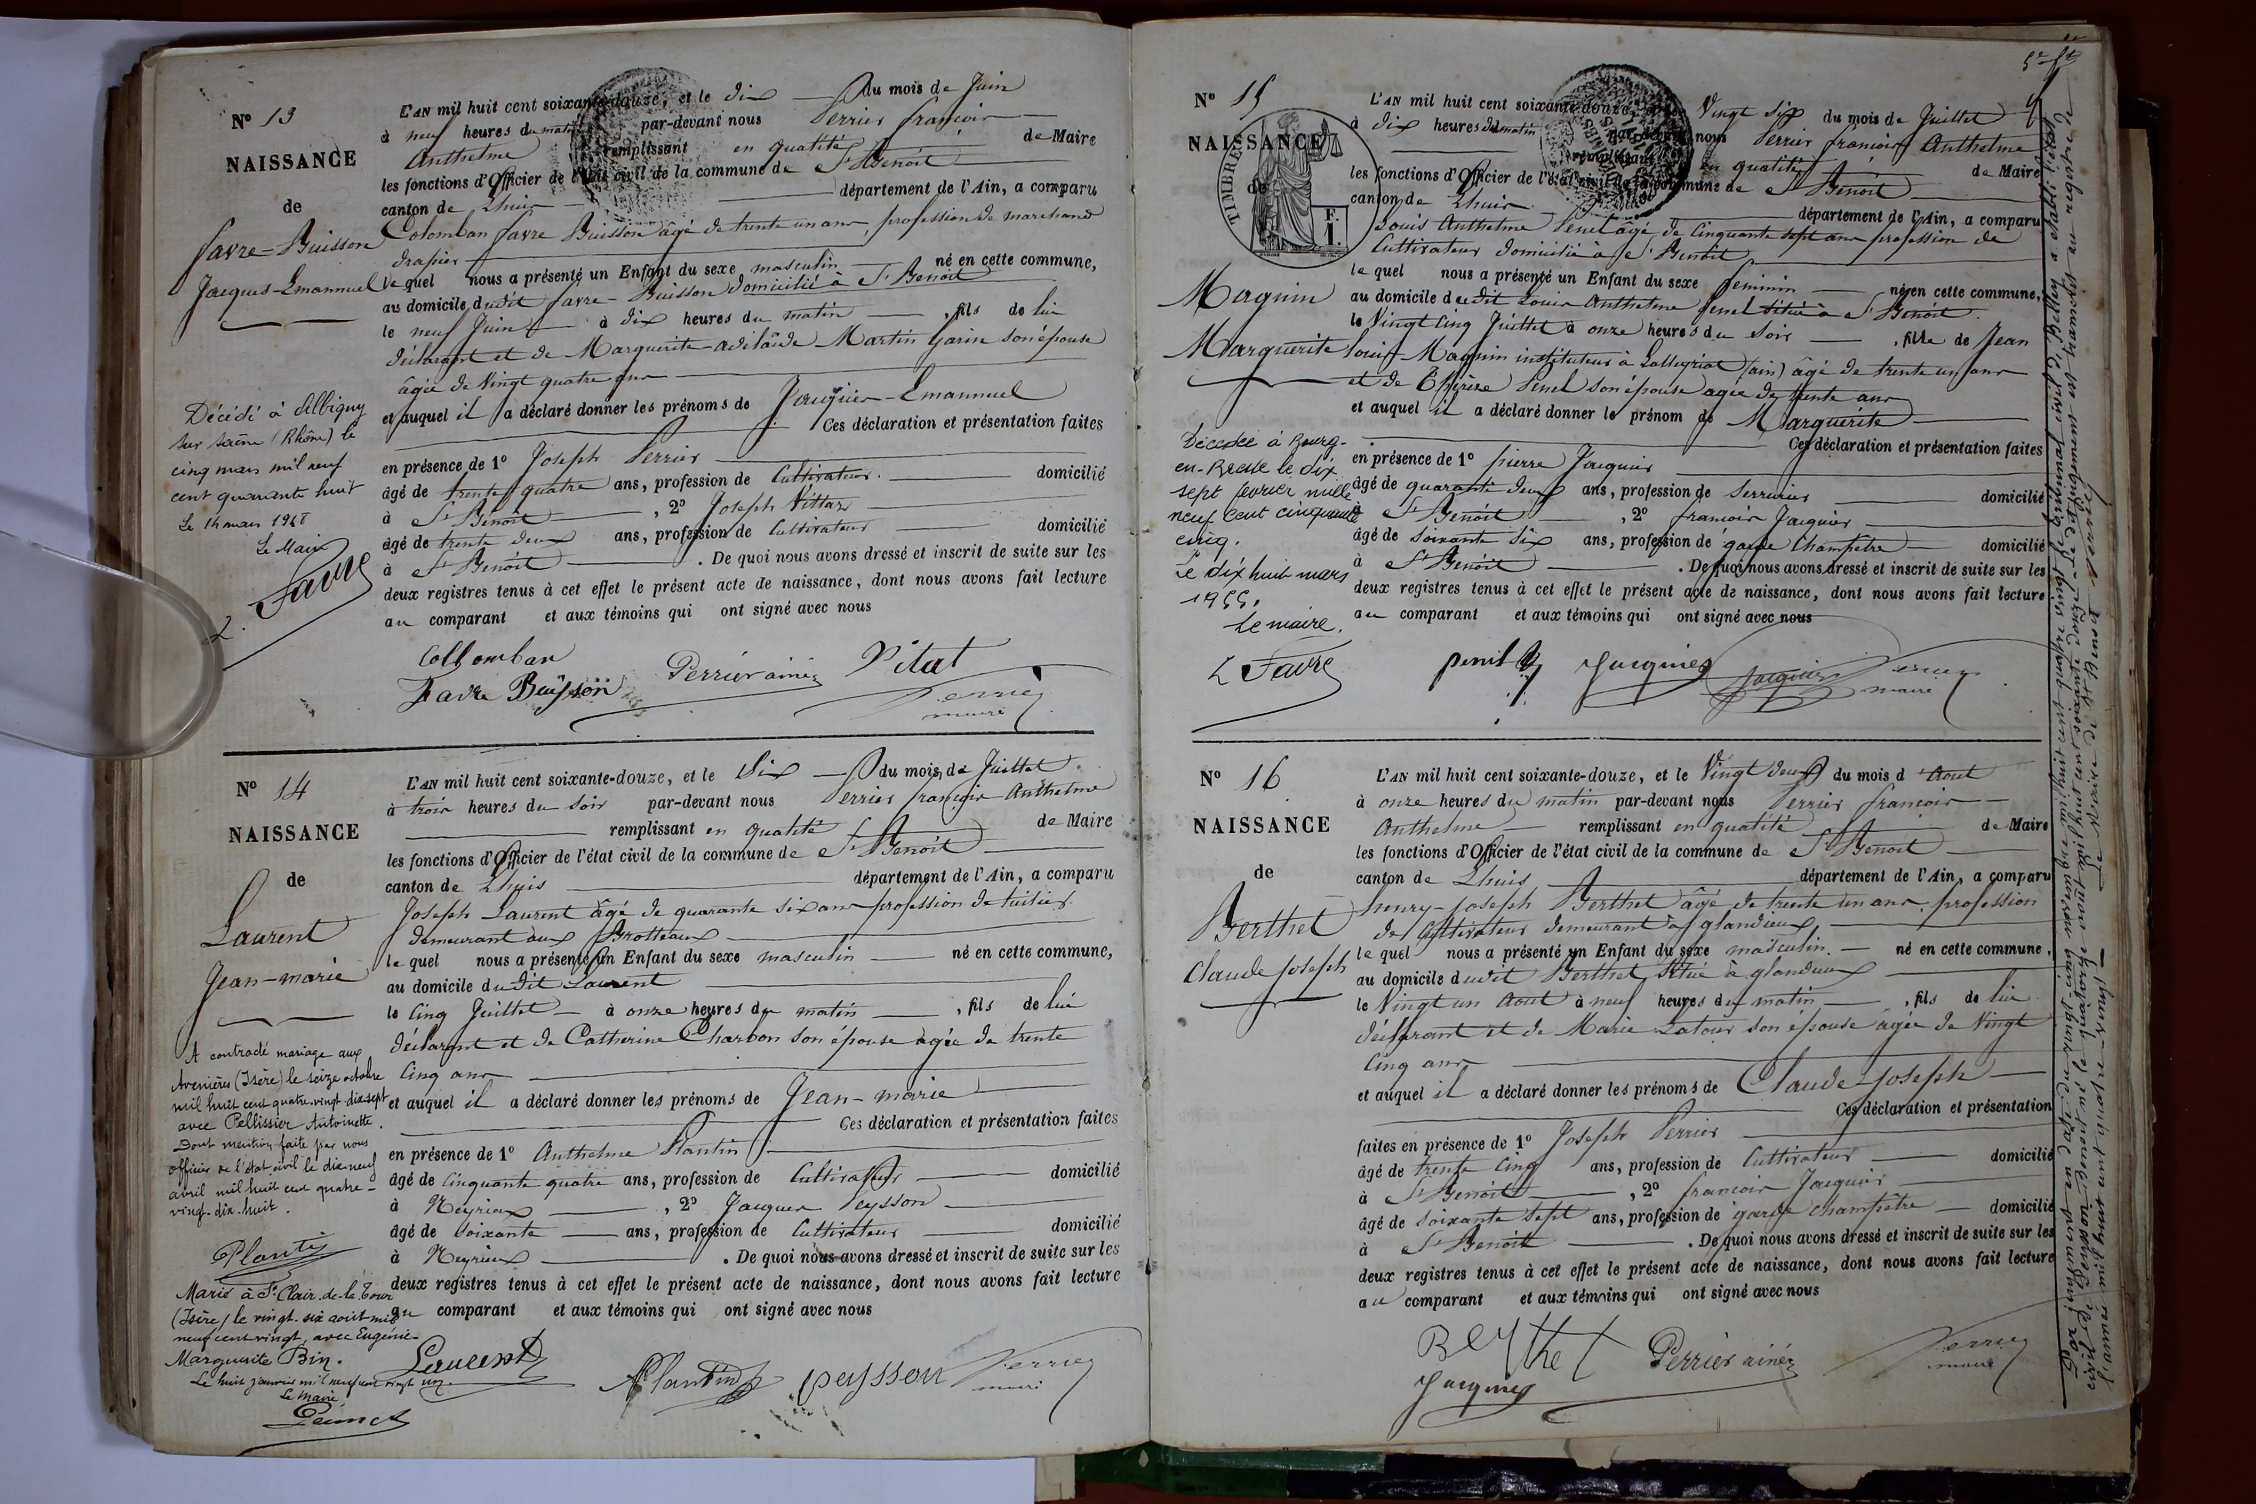 Nº 13
NAISSANCE
de
favre-Buisson
Jacques-Emannuel
L'AN mil huit cent soixante-douze, et le dix du mois de Juin
à neuf heures du matin par-devant nous Perrier françois
Anthelme remplissant en qualité de Maire
les fonctions d'Officier de l'état civil de la commune de St Benoit
canton de Lhuis département de l'Ain, a comparu
Colomban favre Buisson âgé de trente un ans, profession de marchand
drapier
le quel nous a présenté un Enfant du sexe masculin né en cette commune,
au domicile dudit favre-Buisson domicilié à St Benoit
le neuf Juin à dix heures du matin , fils de lui
déclarant et de Marguerite-adélaïde Martin Garin son épouse
âgée de Vingt quatre ans
et auquel il a déclaré donner les prénoms de Jacques-Emannuel
Ces déclaration et présentation faites
en présence de 1º Joseph Perrier
âgé de trente quatre ans, profession de Cultivateur domicilié
à St Benoit , 2º Joseph Vittaz
âgé de trente deux ans, profession de Cultivateur domicilié
à St Benoit . De quoi nous avons dressé et inscrit de suite sur les
deux registres tenus à cet effet le présent acte de naissance, dont nous avons fait lecture
au comparant et aux témoins qui ont signé avec nous
Décédé à Albigny
sur saône (Rhône) le
cinq mars mil neuf
cent quarante huit
Le 14 mars 1948
Le Maire
L. Favre
Collomban
Favre Buisson Perrier ainé Vitat
Perrier
maire
Nº 14
NAISSANCE
de
Laurent
Jean-marie
L'AN mil huit cent soixante-douze, et le Six du mois de Juillet
à trois heures du soir par-devant nous Perrier françois Anthelme
remplissant en qualité de Maire
les fonctions d'Officier de l'état civil de la commune de St Benoit
canton de Lhuis département de l'Ain, a comparu
Joseph Laurent âgé de quarante six ans profession de tuilier
demeurant aux Brotteaux
le quel nous a présenté un Enfant du sexe masculin né en cette commune,
au domicile dudit Laurent
le Cinq Juillet à onze heures du matin , fils de lui
déclarant et de Catherine Charbon son épouse agée de trente
Cinq ans
et auquel il a déclaré donner les prénoms de Jean-marie
Ces déclaration et présentation faites
en présence de 1º Anthelme Plantin
âgé de Cinquante quatre ans, profession de Cultivateur domicilié
à Neyrieux , 2º Jacques Peysson
âgé de Soixante ans, profession de Cultivateur domicilié
à Neyrieux . De quoi nous avons dressé et inscrit de suite sur les
deux registres tenus à cet effet le présent acte de naissance, dont nous avons fait lecture
au comparant et aux témoins qui ont signé avec nous
A contracté mariage aux
Avenières (Isère) le seize octobre
mil huit cent quatre-vingt-dix-sept
avec Pellissier Antoinette.
Dont mention faite par nous
officier de l'état civil le dix-neuf
avril mil huit cent quatre-
vingt-dix-huit.
Plantin
Marié à St Clair-de-la-Tour
(Isère) le vingt-six août mil
neuf cent vingt, avec Eugénie-
Marguerite Bin.
Le huit janvier mil neuf cent vingt un.
Le Maire
Laurent Plantin peysson Perrier
maire
5e ft
Nº 15
NAISSANCE
de
TIMBRE
Magnin
Marguerite
L'AN mil huit cent soixante-douze, Vingt Six du mois de Juillet
à dix heures du matin par-devant nous Perrier françois Anthelme
remplissant en qualité de Maire
les fonctions d'Officier de l'état civil de la commune de St Benoit
canton de Lhuis département de l'Ain, a comparu
Louis Anthelme Penet âgé de Cinquante sept ans profession de
Cultivateur domicilié à St Benoit
le quel nous a présenté un Enfant du sexe féminin né en cette commune,
au domicile dudit Louis Anthelme Penel situé à St Benoit
le Vingt Cinq Juillet à onze heures du Soir , fille de Jean
louis Magnin instituteur à Lalleyriat (ain) âgé de trente un ans
et de Thérèse Penel son épouse agée de trente ans
et auquel il a déclaré donner le prénom de Marguerite
Ces déclaration et présentation faites
en présence de 1º pierre Jacquier
âgé de quarante deux ans, profession de Serrurier domicilié
à St Benoit , 2º françois Jacquier
âgé de Soixante Six ans, profession de garde Champêtre domicilié
à St Benoit . De quoi nous avons dressé et inscrit de suite sur les
deux registres tenus à cet effet le présent acte de naissance, dont nous avons fait lecture
au comparant et aux témoins qui ont signé avec nous
Décédée à Bourg-
en-Bresse le dix
sept février mille
neuf cent cinquante
cinq.
Le dix huit mars
1955.
Le maire.
L Favre
Jacquier Jacquier Perrier
maire
Nº 16
NAISSANCE
de
Berthet
Claude Joseph
L'AN mil huit cent soixante-douze, et le Vingt deux du mois d'Aout
à onze heures du matin par-devant nous Perrier françois
Anthelme remplissant en qualité de Maire
les fonctions d'Officier de l'état civil de la commune de St Benoit
canton de Lhuis département de l'Ain, a comparu
henry-Joseph Berthet âgé de trente un ans, profession
de Cultivateur demeurant à glandieux
le quel nous a présenté un Enfant du sexe masculin né en cette commune,
au domicile dudit Berthet, Situé à glandieux
le Vingt un Aout à neuf heures du matin , fils de lui
déclarant et de Marie Latour son épouse âgée de Vingt
Cinq ans
et auquel il a déclaré donner les prénoms de Claude-Joseph
Ces déclaration et présentation
faites en présence de 1º Joseph Perrier
âgé de trente Cinq ans, profession de Cultivateur domicilié
à St Benoit , 2º françois Jacquier
âgé de Soixante Sept ans, profession de garde champêtre domicilié
à St Benoit . De quoi nous avons dressé et inscrit de suite sur les
deux registres tenus à cet effet le présent acte de naissance, dont nous avons fait lecture
au comparant et aux témoins qui ont signé avec nous
Berthet Perrier ainé Perrier
maire
Jacquier